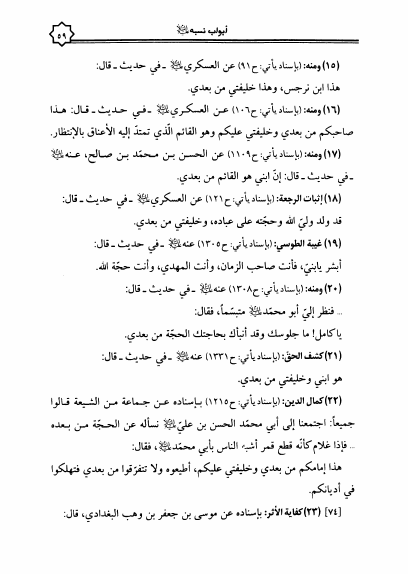 أبواب نسبه ﷺ
٥٩
(١٥) ومنه: (بإسناد يأتي: ح٩١) عن العسكري ﷺ ـ في حديث ـ قال:
هذا ابن نرجس، وهذا خليفتي من بعدي.
(١٦) ومنه: (بإسناد يأتي: ح١٠٦) عن العسكري ﷺ ـ في حديث ـ قال: هذا
صاحبكم من بعدي وخليفتي عليكم وهو القائم الّذي تمتدّ إليه الأعناق بالإنتظار.
(١٧) ومنه: (بإسناد يأتي: ح١١٠٩) عن الحسن بن محمّد بن صالح، عنه ﷺ
ـ في حديث ـ قال: إنّ ابني هو القائم من بعدي.
(١٨) إثبات الرجعة: (بإسناد يأتي: ح١٢١) عن العسكري ﷺ ـ في حديث ـ قال:
قد ولد وليّ الله وحجّته على عباده، وخليفتي من بعدي.
(١٩) غيبة الطوسي: (بإسناد يأتي: ح١٣٠٥) عنه ﷺ ـ في حديث ـ قال:
أبشر يابنيّ، فأنت صاحب الزمان، وأنت المهدي، وأنت حجّة الله.
(٢٠) ومنه: (بإسناد يأتي: ح١٣٠٨) عنه ﷺ ـ في حديث ـ قال:
... فنظر إليّ أبو محمّد ﷺ متبسّماً، فقال:
ياكامل! ما جلوسك وقد أنبأك بحاجتك الحجّة من بعدي.
(٢١) كشف الحقّ: (بإسناد يأتي: ح١٣٣١) عنه ﷺ ـ في حديث ـ قال:
هو ابني وخليفتي من بعدي.
(٢٢) كمال الدين: (بإسناد يأتي: ح١٢١٥) بإسناده عن جماعة من الشيعة قالوا
جميعاً: اجتمعنا إلى أبي محمّد الحسن بن عليّ ﷺ نسأله عن الحجّة من بعده
... فإذا غلام كأنّه قطع قمر أشبه الناس بأبي محمّد ﷺ، فقال:
هذا إمامكم من بعدي وخليفتي عليكم، أطيعوه ولا تتفرّقوا من بعدي فتهلكوا
في أديانكم.
[٧٤] (٢٣) كفاية الأثر: بإسناده عن موسى بن جعفر بن وهب البغدادي، قال: